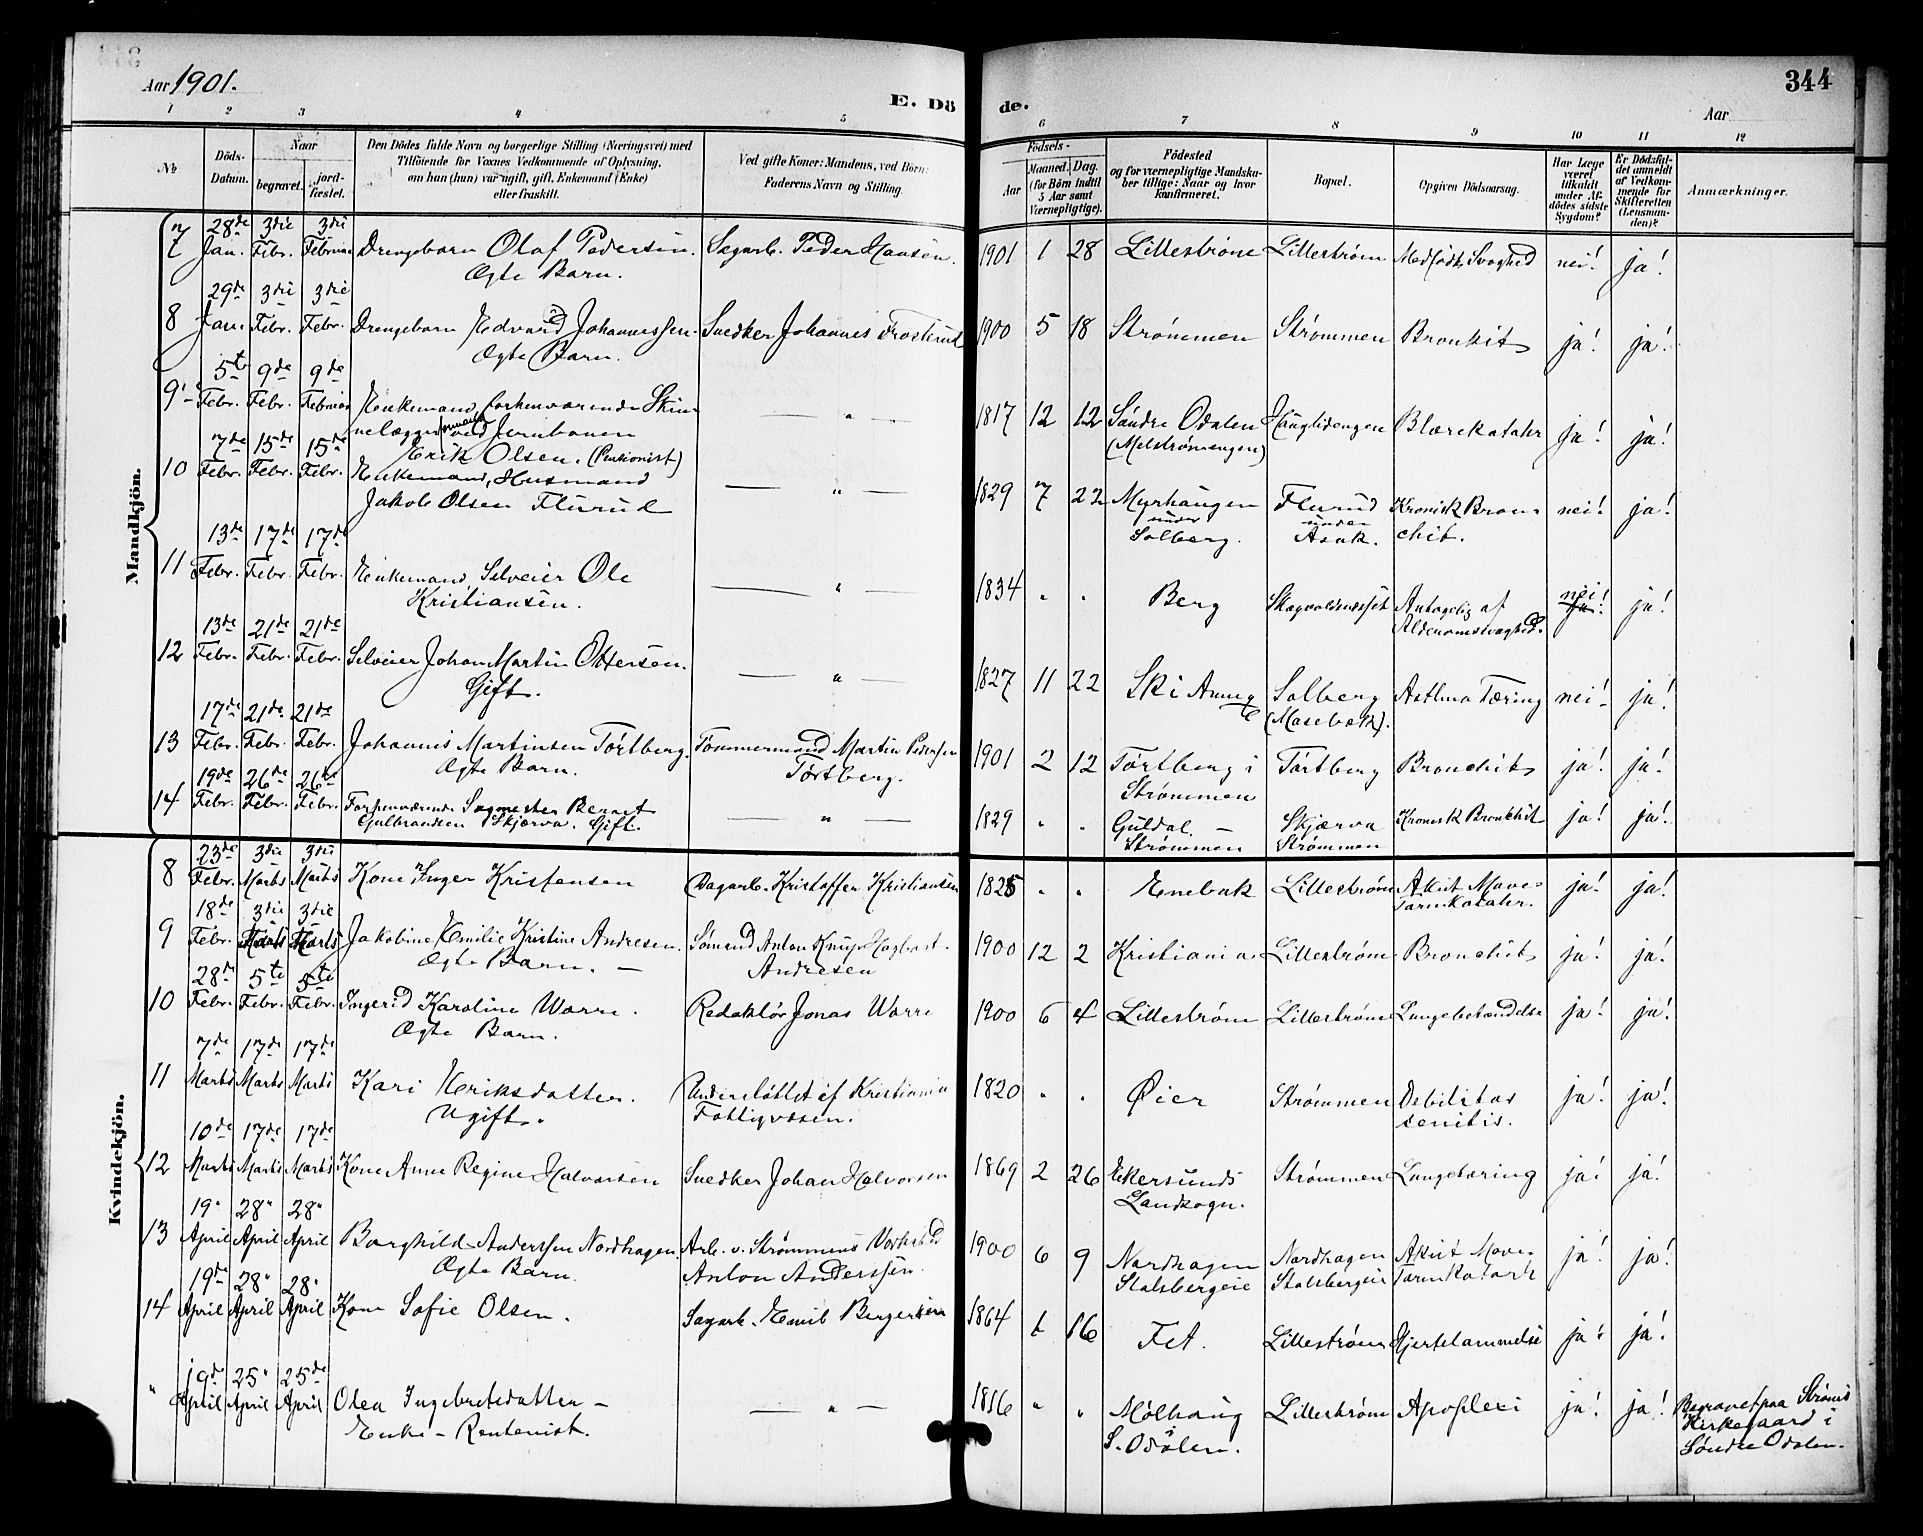 Aar 1901.
E. Dö
de.
344
Aar
1 2 3 4 5 6 7 8 9 10 11 12
No
Döds-Datum.
Naar
begravet.
jord-fæstet.
Den Dödes fulde Navn og borgerlige Stilling (Næringsvei) med
Tilföiende for Voxnes Vedkommende af Oplysning,
om han (hun) var ugift, gift, Enkemand (Enke)
eller fraskilt.
Ved gifte Koner: Mandens, ved Börn:
Faderens Navn og Stilling.
Födsels-
Aar
Maaned. Dag.
(for Börn indtil
5 Aar samt
Værnepligtige).
Födested
og for værnepligtige Mandska-
ber tillige: Naar og hvor
konfirmeret.
Bopæl.
Opgiven Dödsaarsag.
Har Læge
været
tilkaldt
under Af-
dödes sidste
Sygdom?
Er Dödsfal-
det anmeldt
af Vedkom-
mende for
Skifteretten
(Lensman-
den)?
Anmærkninger.
Mandkjön.
7 28de Jan. 3die Febr. 3die Februar Drengebarn Olaf Pedersen. Sagarb. Peder Hansen. 1901 1 28 Lillestrøm Lillestrøm Medfødt Svaghed nei! ja!
Ægte Barn.
8 29de Jan. 3die Febr. 3die Febr. Drengebarn Edvard Johannessen. Snedker Johannes Frosterud 1900 5 18 Strømmen Strømmen Bronkit ja! ja!
Ægte Barn.
9 5te Febr. 9de Febr. 9de Februar Enkemand, forhenværende Skin-
nelægger ved Jernbanen
Erik Olsen. (Pensionist) — " — 1817 12 12 Søndre Odalen Hauglidengen Blærekatahr ja! ja!
(Melstrømengen)
10 7de Febr. 15de Febr. 15de Febr. Enkemand, Husmand
Jakob Olsen Flurud — " — 1829 7 22 Myrhaugen Flurud Kronisk Bron- nei! ja!
under under chit.
Solberg. Asak.
11 13de Febr. 17de Febr. 17de Febr. Enkemand, Selveier Ole
Kristiansen. — " — 1834 " " Berg Antagelig af nei! ja!
Alderdomssvaghed.
12 13de Febr. 21de Febr. 21de Febr. Selveier Johan Martin Ottersen.
Gift. — " — 1827 11 22 Ski Annex Solberg Asthma Tæring nei! ja!
(Masebæk).
13 17de Febr. 21de Febr. 21de Febr. Johannes Martinsen Tørtberg. Tømmermand Martin Pedersen 1901 2 12 Tørtberg i Tørtberg Bronchit ja! ja!
Ægte Barn. Tørtberg. Strømmen
14 19de Febr. 26de Febr. 26de Febr. Forhenværende Sagmester Bernt
Gulbrandsen Skjærva. Gift. — " — 1829 " " Guldal. — Skjærva Kronisk Bronchit ja! ja!
Strømmen Strømmen
Kvindekjön.
8 23de Febr. 3die Marts 3die Marts Kone Inger Kristensen Dagarb. Kristoffer Kristiansen 1825 " " Enebak Lillestrøm Akut Mave- ja! ja!
Tarmkatahr.
9 18de Febr. 3die Marts 3die Marts Jakobine Emilie Kristine Andresen. Sømand Anton Knup Hagbart 1900 12 2 Kristiania Lillestrøm Bronchit ja! ja!
Ægte Barn. — Andresen
10 28de Febr. 5te Febr. 5te Febr. Ingerid Karoline Warre. Redaktør Jonas Warre 1900 6 4 Lillestrøm Lillestrøm Lungebetændelse ja! ja!
Ægte Barn.
11 7de Marts 17de Marts 17de Marts Kari Eriksdatter. Understøttet af Kristiania 1820 " " Øier Strømmen Debilitas ja! ja!
Ugift. Fattigvæsen. senilis.
12 10de Marts 17de Marts 17de Marts Kone Anne Regine Halvorsen Snedker Johan Halvorsen 1869 2 26 Ekersunds Strømmen Lungetæring ja! ja!
Landsogn.
13 19" April 28" April 28" April Borghild Anderssen Nordhagen Arb. v. Strømmens Værksted 1900 6 9 Nordhagen Nordhagen Akut Mave- ja! ja!
Ægte Barn. Anton Anderssen Stalsbergeie Stalsbergeie Tarmkatarh
14 19de April 28" April 28" April Kone Sofie Olsen. Sagarb. Emil Bergersen 1864 16 Fet. Lillestrøm Hjertelammelse ja! ja!
" 19de April 25" April 25de April Olea Ingebretsdatter — — " — 1816 " " Mølhaug Lillestrøm Apoplexi ja! ja! Begravet paa Strøms
Enke — Rentenist. S. Odalen. Kirkegaard i
Søndre Odalen.